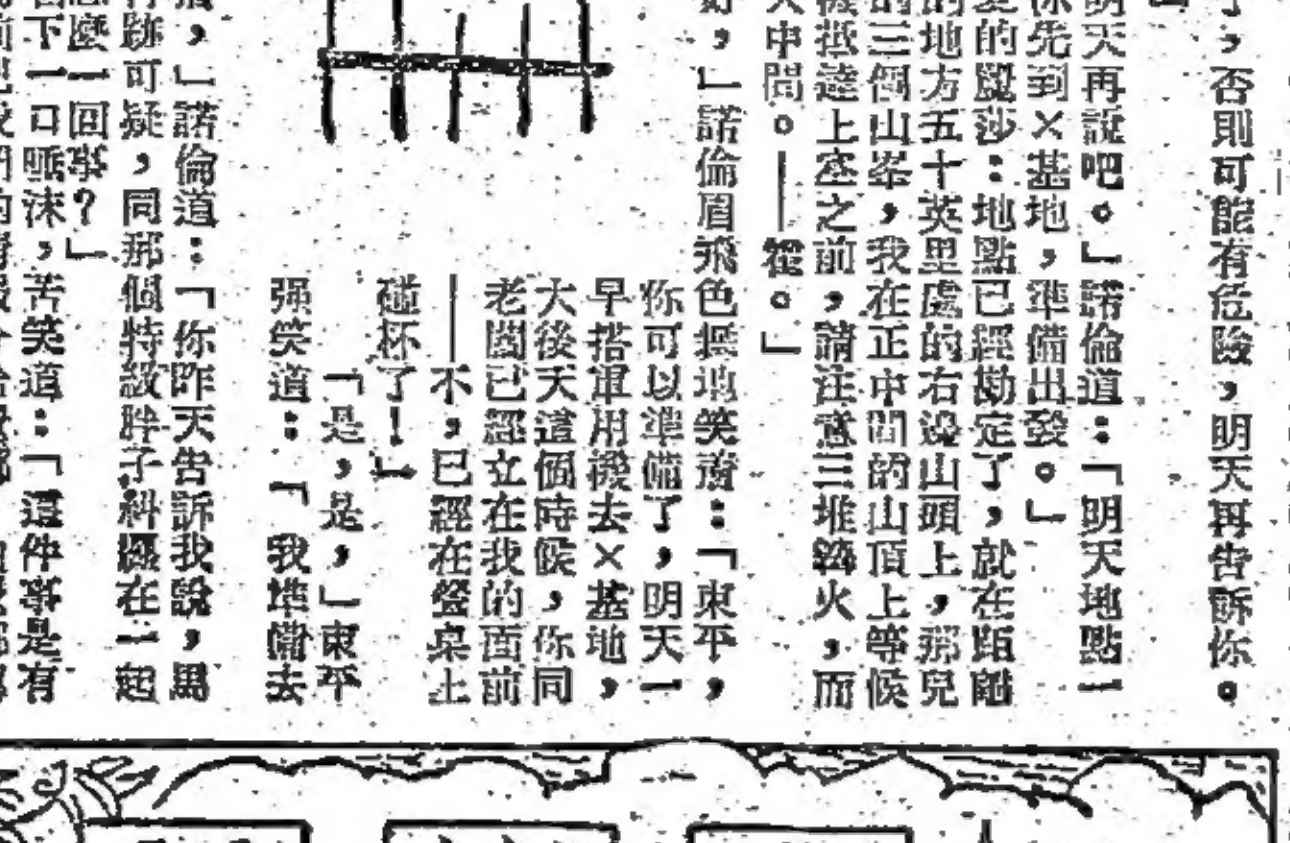 了，否則可能有危險，明天再告訴你。
」
明天再說吧。」諾倫道：「明天地點一
你先到×基地，準備出發。」
的魔莎：地點已經勘定了，就在距離
的地方五十英里處的右邊山頭上，那兒
的三個山峯，我在正中間的山頂上等候
機抵達上空之前，請注意三堆篝火，而
大中間。——霍。」
好，」諾倫眉飛色舞地笑着：「東平，
你可以準備了，明天一
早搭軍用機去×基地，
大後天這個時候，你同
老闆已經立在我的面前
——不，已經在餐桌上
碰杯了！」
「是，是，」東平
强笑道：「我準備去
，」諾倫道：「你昨天告訴我說，馬
跡可疑，同那個特效胖子糾纏在一起
麼一回事？」
下一口唾沫，苦笑道：「這件事是有